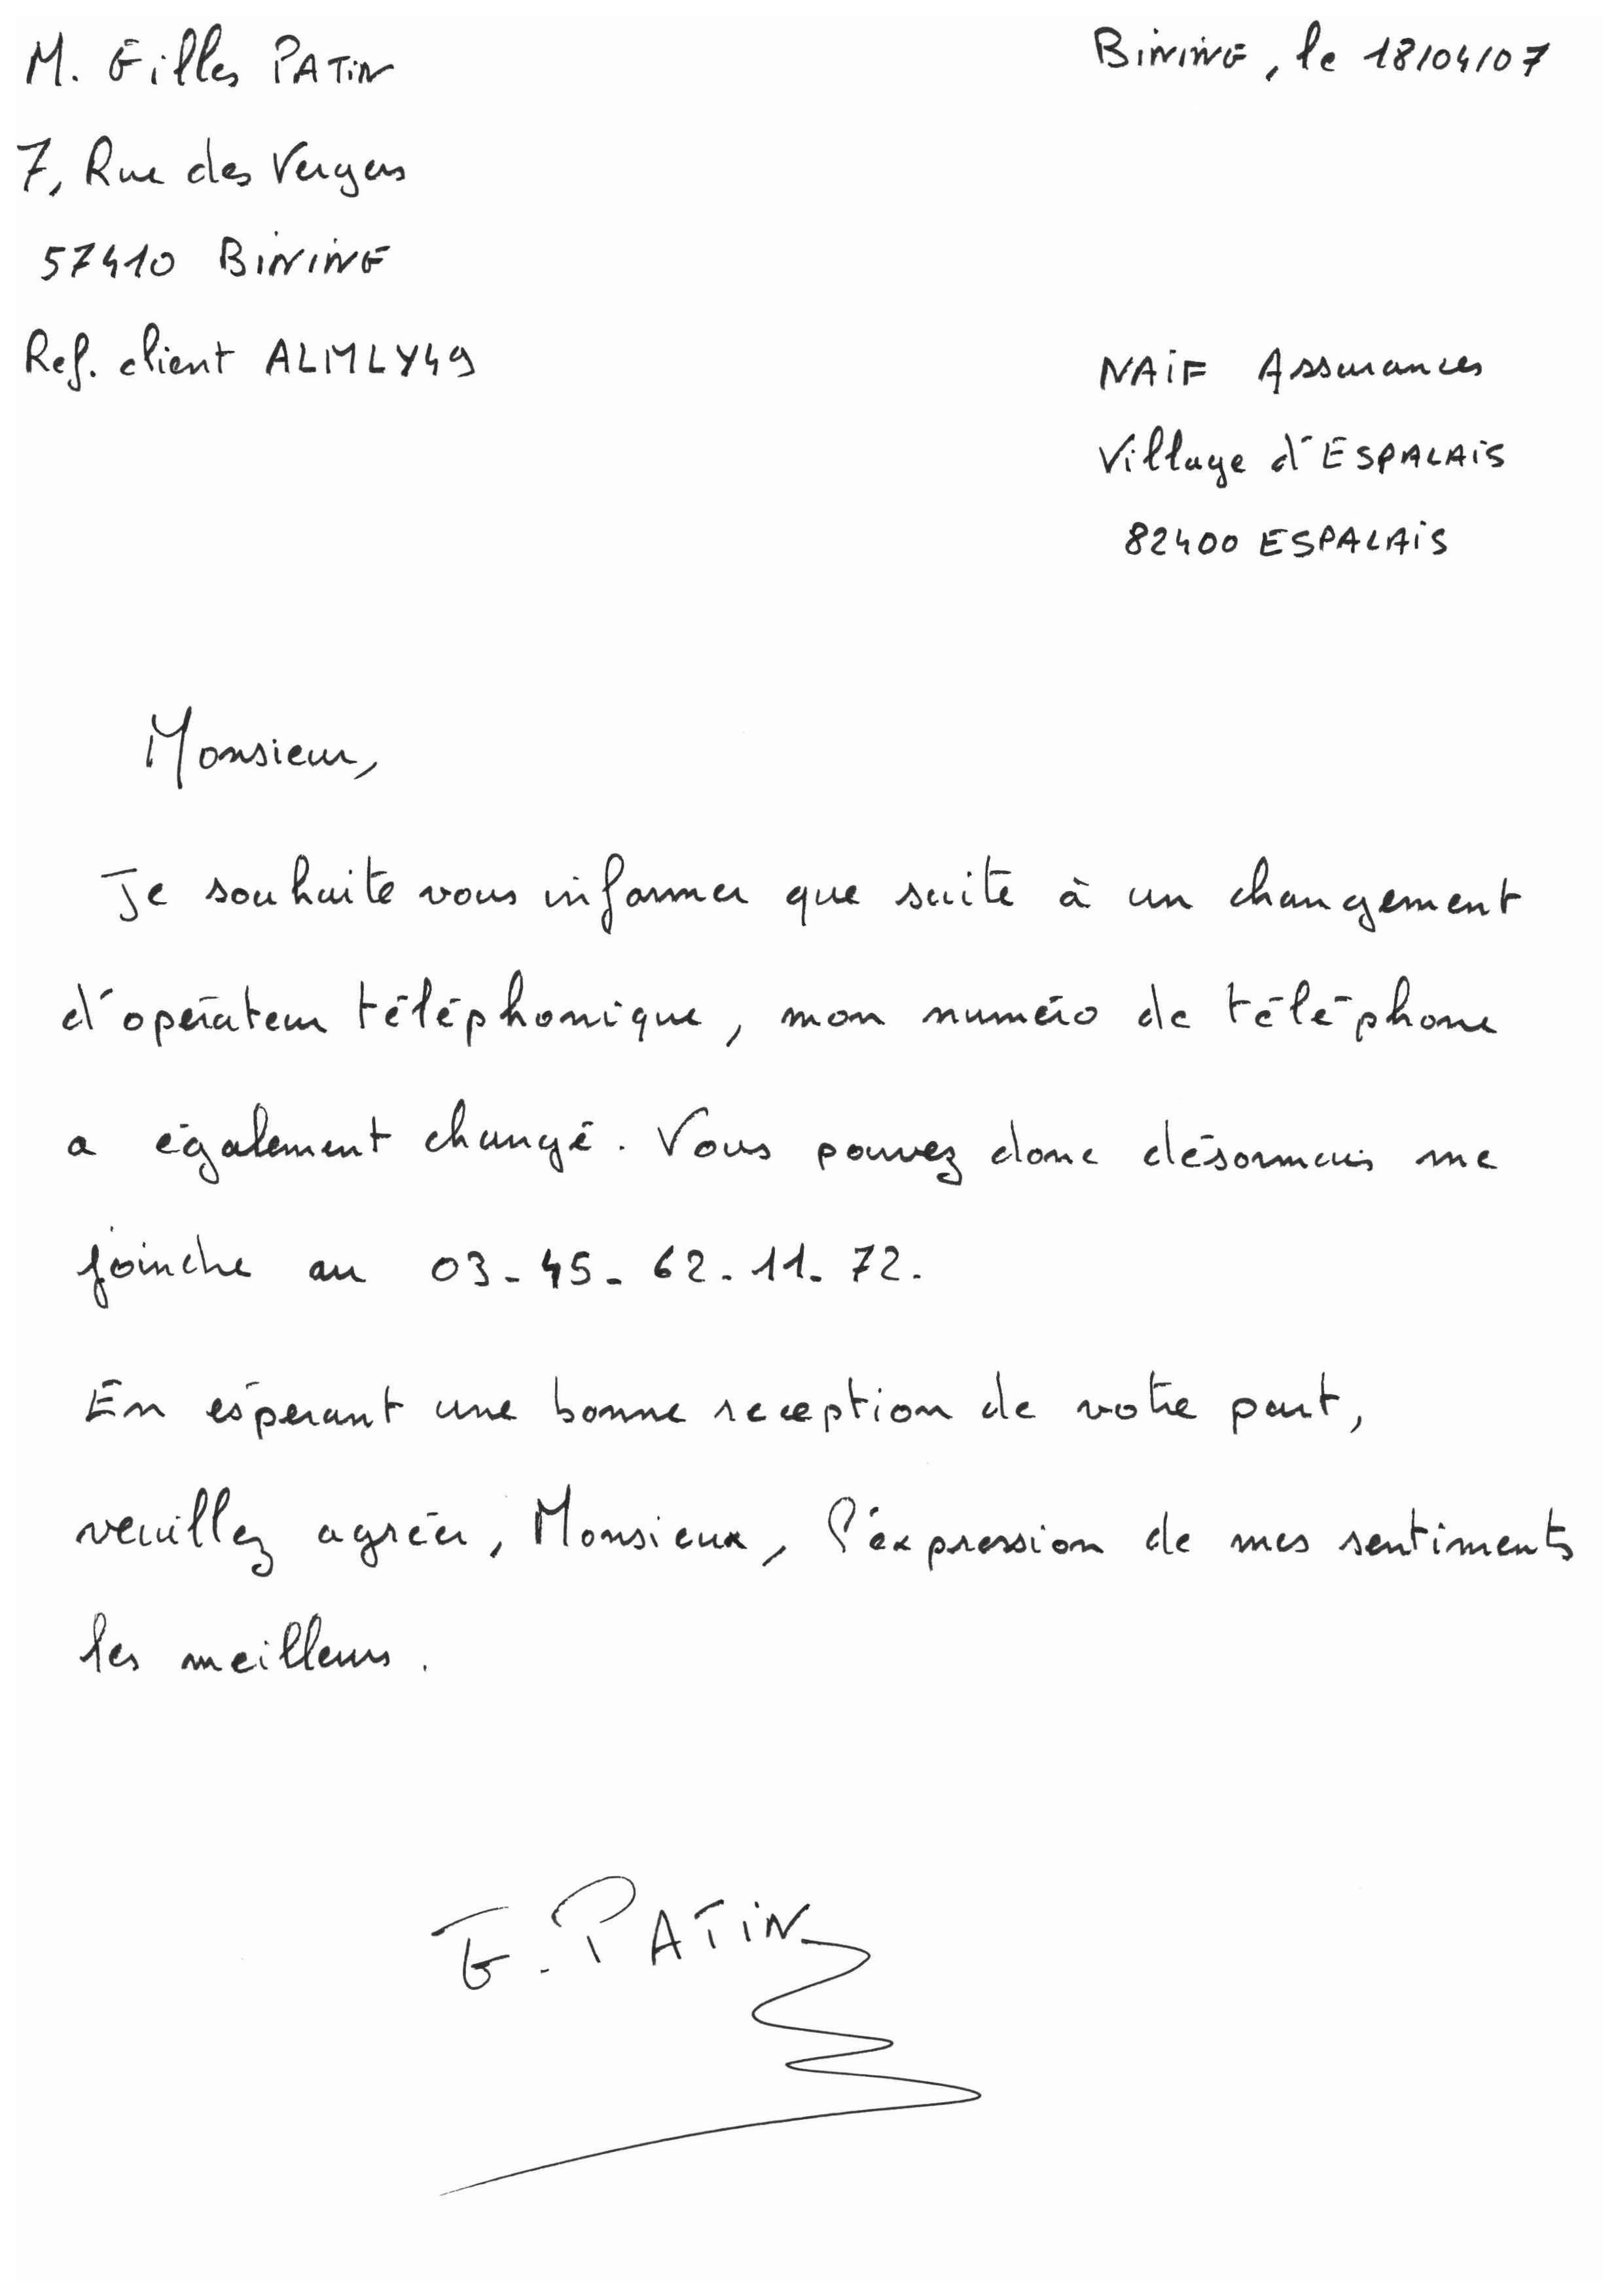 M. Gilles PATIN
Bining, le 18/04/07
7, Rue des Vergers
57410 BINING
Ref. client ALMLY49
NAIF Assurances
Village d'ESPALAIS
82400 ESPALAIS
Monsieur,
Je souhaite vous informer que suite à un changement
d'opérateur téléphonique, mon numéro de téléphone
a également changé. Vous pouvez donc désormais me
joindre au 03-45-62-11-72.
En espérant une bonne reception de votre part,
veuillez agréer, Monsieur, l'éxpression de mes sentiments
les meilleurs.
G. PATIN